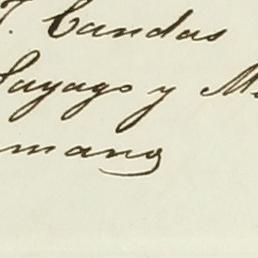 T. Candas
Sayago y M
mano